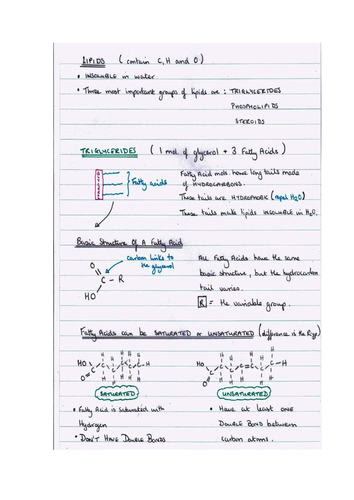 LIPIDS (contain C, H and O)
• INSOLUBLE in water
• Three most important groups of lipids are : TRIGLYCERIDES
PHOSPHOLIPIDS
STEROIDS
TRIGLYCERIDES (1 mol. of glycerol + 3 Fatty Acids)
Fatty Acid mols have long tails made
of HYDROCARBONS.
} Fatty acids
These tails are HYDROPHOBIC (repel H2O)
These tails make lipids INSOLUBLE in H2O.
Basic Structure Of A Fatty Acid
carbon links to
the glycerol
O
C – R
HO
All Fatty Acids have the same
basic structure, but the hydrocarbon
tail varies.
R = the variable group.
Fatty Acids can be SATURATED or UNSATURATED (difference is the R
SATURATED
UNSATURATED
• Fatty Acid is saturated with
Hydrogen
• DON'T HAVE DOUBLE BONDS
• Have at least ONE
DOUBLE BOND between
carbon atoms.